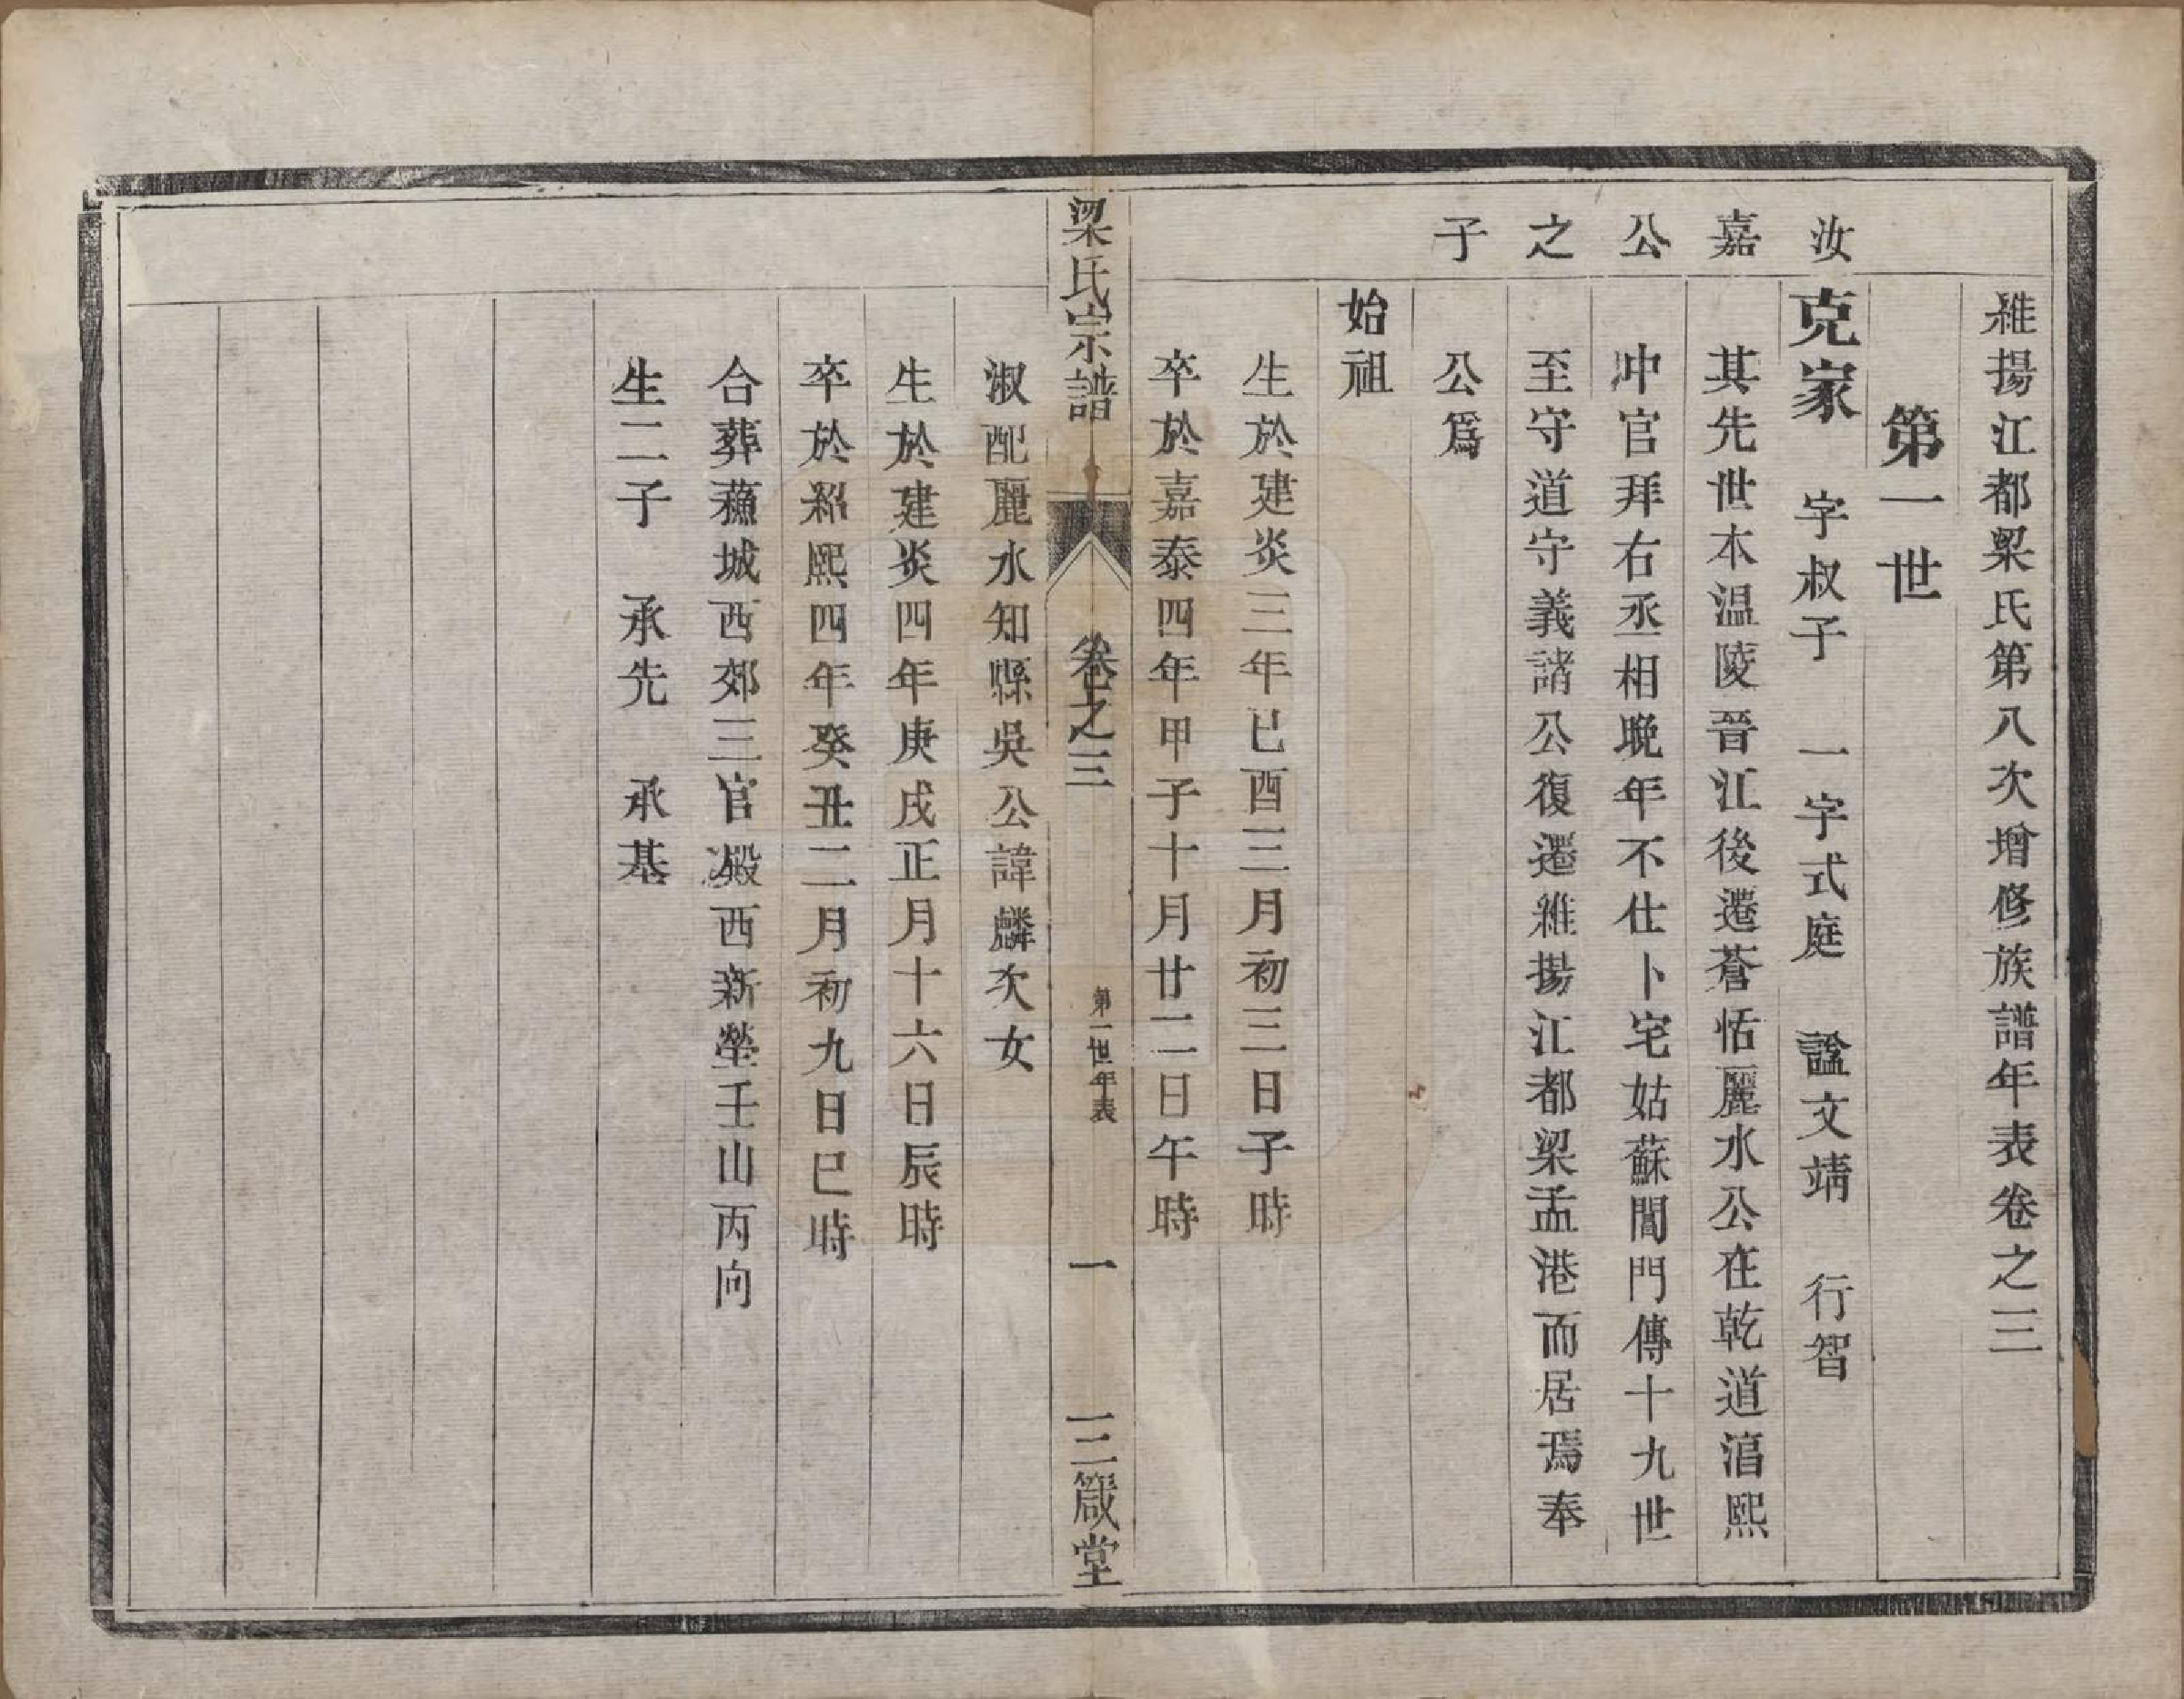 維揚江都梁氏第八次增修族譜年表卷之三
第一世
汝嘉公之子
克家 字叔子 一字式庭 諡文靖 行智
其先世本温陵晉江後遷蒼恬麗水公在乾道淯熙
冲官拜右丞相晚年不仕卜宅姑蘇閶門傳十九世
至守道守義諸公復遷維揚江都梁孟港而居焉奉
公爲
始祖
生於建炎三年已酉三月初三日子時
卒於嘉泰四年甲子十月廿二日午時
梁氏宗譜
卷之三
第一世年表
一
三箴堂
淑配麗水知縣吳公諱麟次女
生於建炎四年庚戌正月十六日辰時
卒於紹熙四年癸丑二月初九日巳時
合葬蘓城西郊三官殿西新塋壬山丙向
生二子 承先 承基